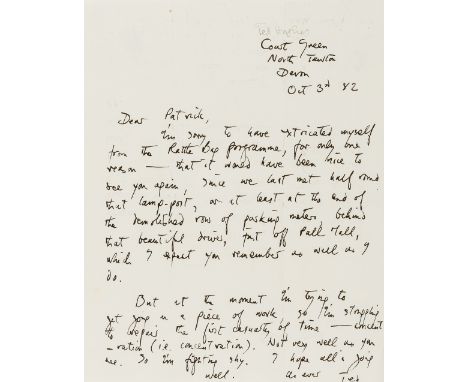 Ted Hughes
Court Green
North Tawton
Devon
Oct 3rd 82
Dear Patrick,
I'm sorry to have extricated myself
from the Rattle Bag programme, for only one
reason — that it would have been nice to
see you again, since we last met half round
that lamp-post, or at least at the end of
the demolished row of parking meters, behind
that beautiful driver, just off Pall Mall,
which I expect you remember as well as I
do.
But at the moment I'm trying to
get going on a piece of work, so I'm struggling
to repair the first casualty of time — concent
-ration (i.e. concentration). Not very well as you
see. So I'm fighting shy. I hope all's going
well. As ever Ted